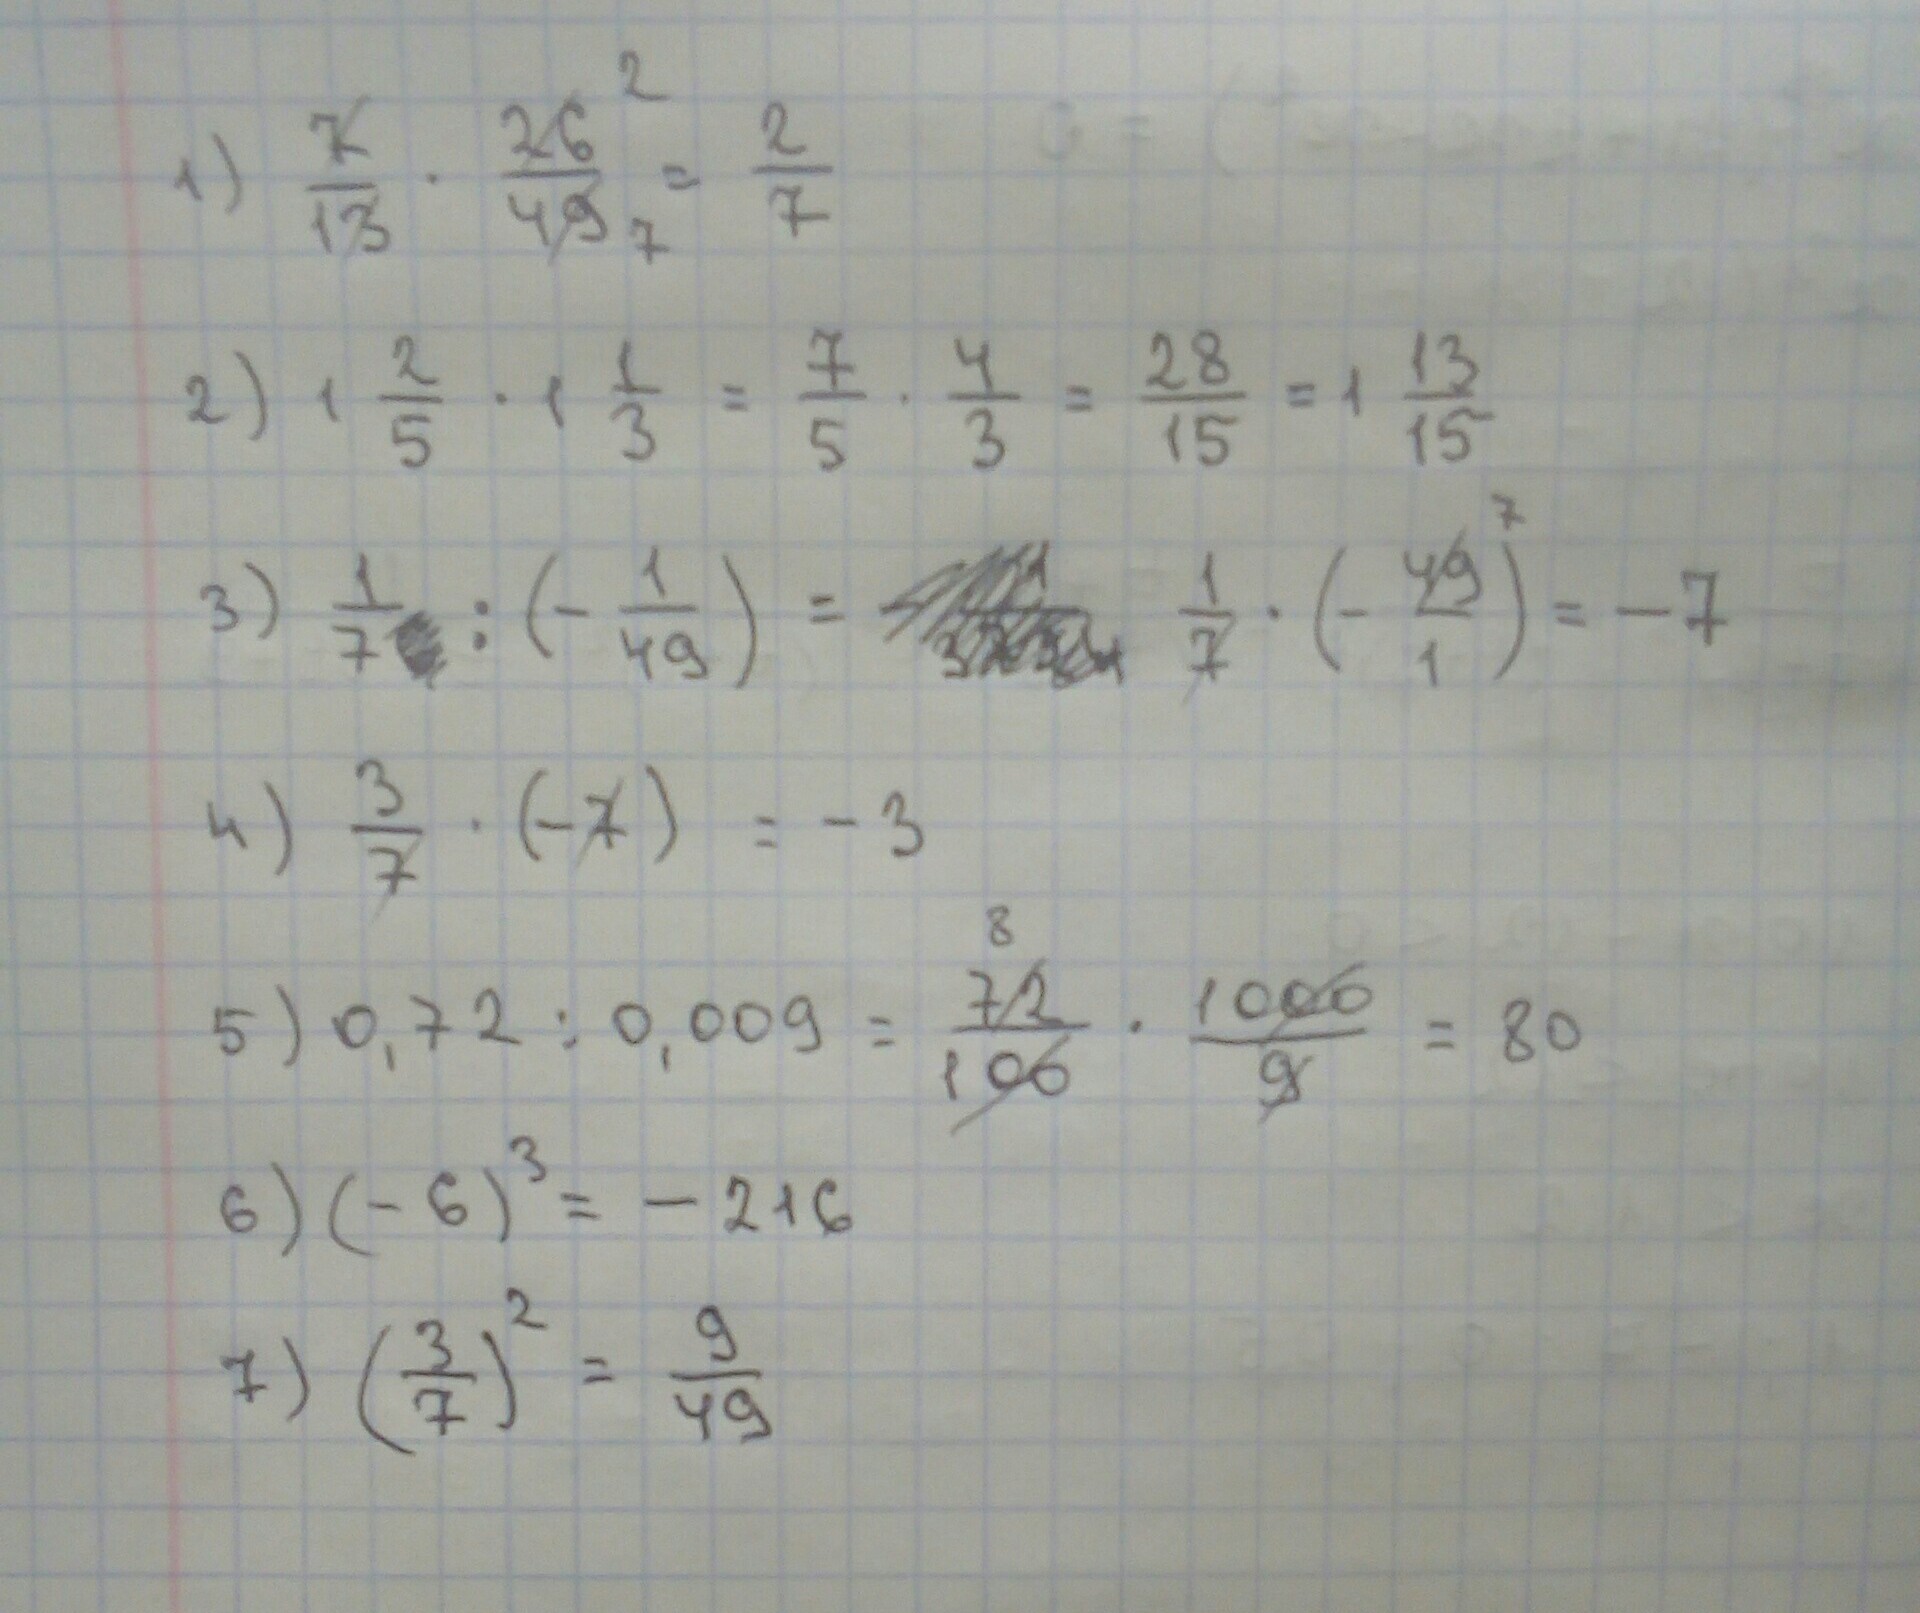 1) 7/13 · 26/49 2 7 = 2/7
2) 1 2/5 · 1 1/3 = 7/5 · 4/3 = 28/15 = 1 13/15
3) 1/7 : (- 1/49) = 1/7 · (- 49/1) 7 = -7
4) 3/7 · (-7) = -3
5) 0,72 : 0,009 = 8 72/100 · 1000/9 = 80
6) (-6)³ = -216
7) (3/7)² = 9/49